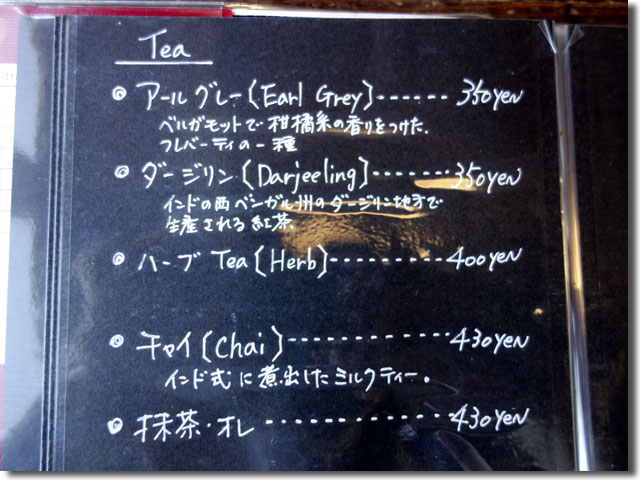 Tea
◎ アールグレー〔Earl Grey〕------- 350yen
ベルガモットで柑橘系の香りをつけた.
フレバーティの一種
◎ ダージリン〔Darjeeling〕------- 350yen
インドの西ベンガル州のダージリン地方で
生産される紅茶
◎ ハーブ Tea〔Herb〕---------- 400yen
◎ チャイ〔Chai〕-------------- 430yen
インド式に煮出したミルクティー。
◎ 抹茶・オレ --------------- 430yen